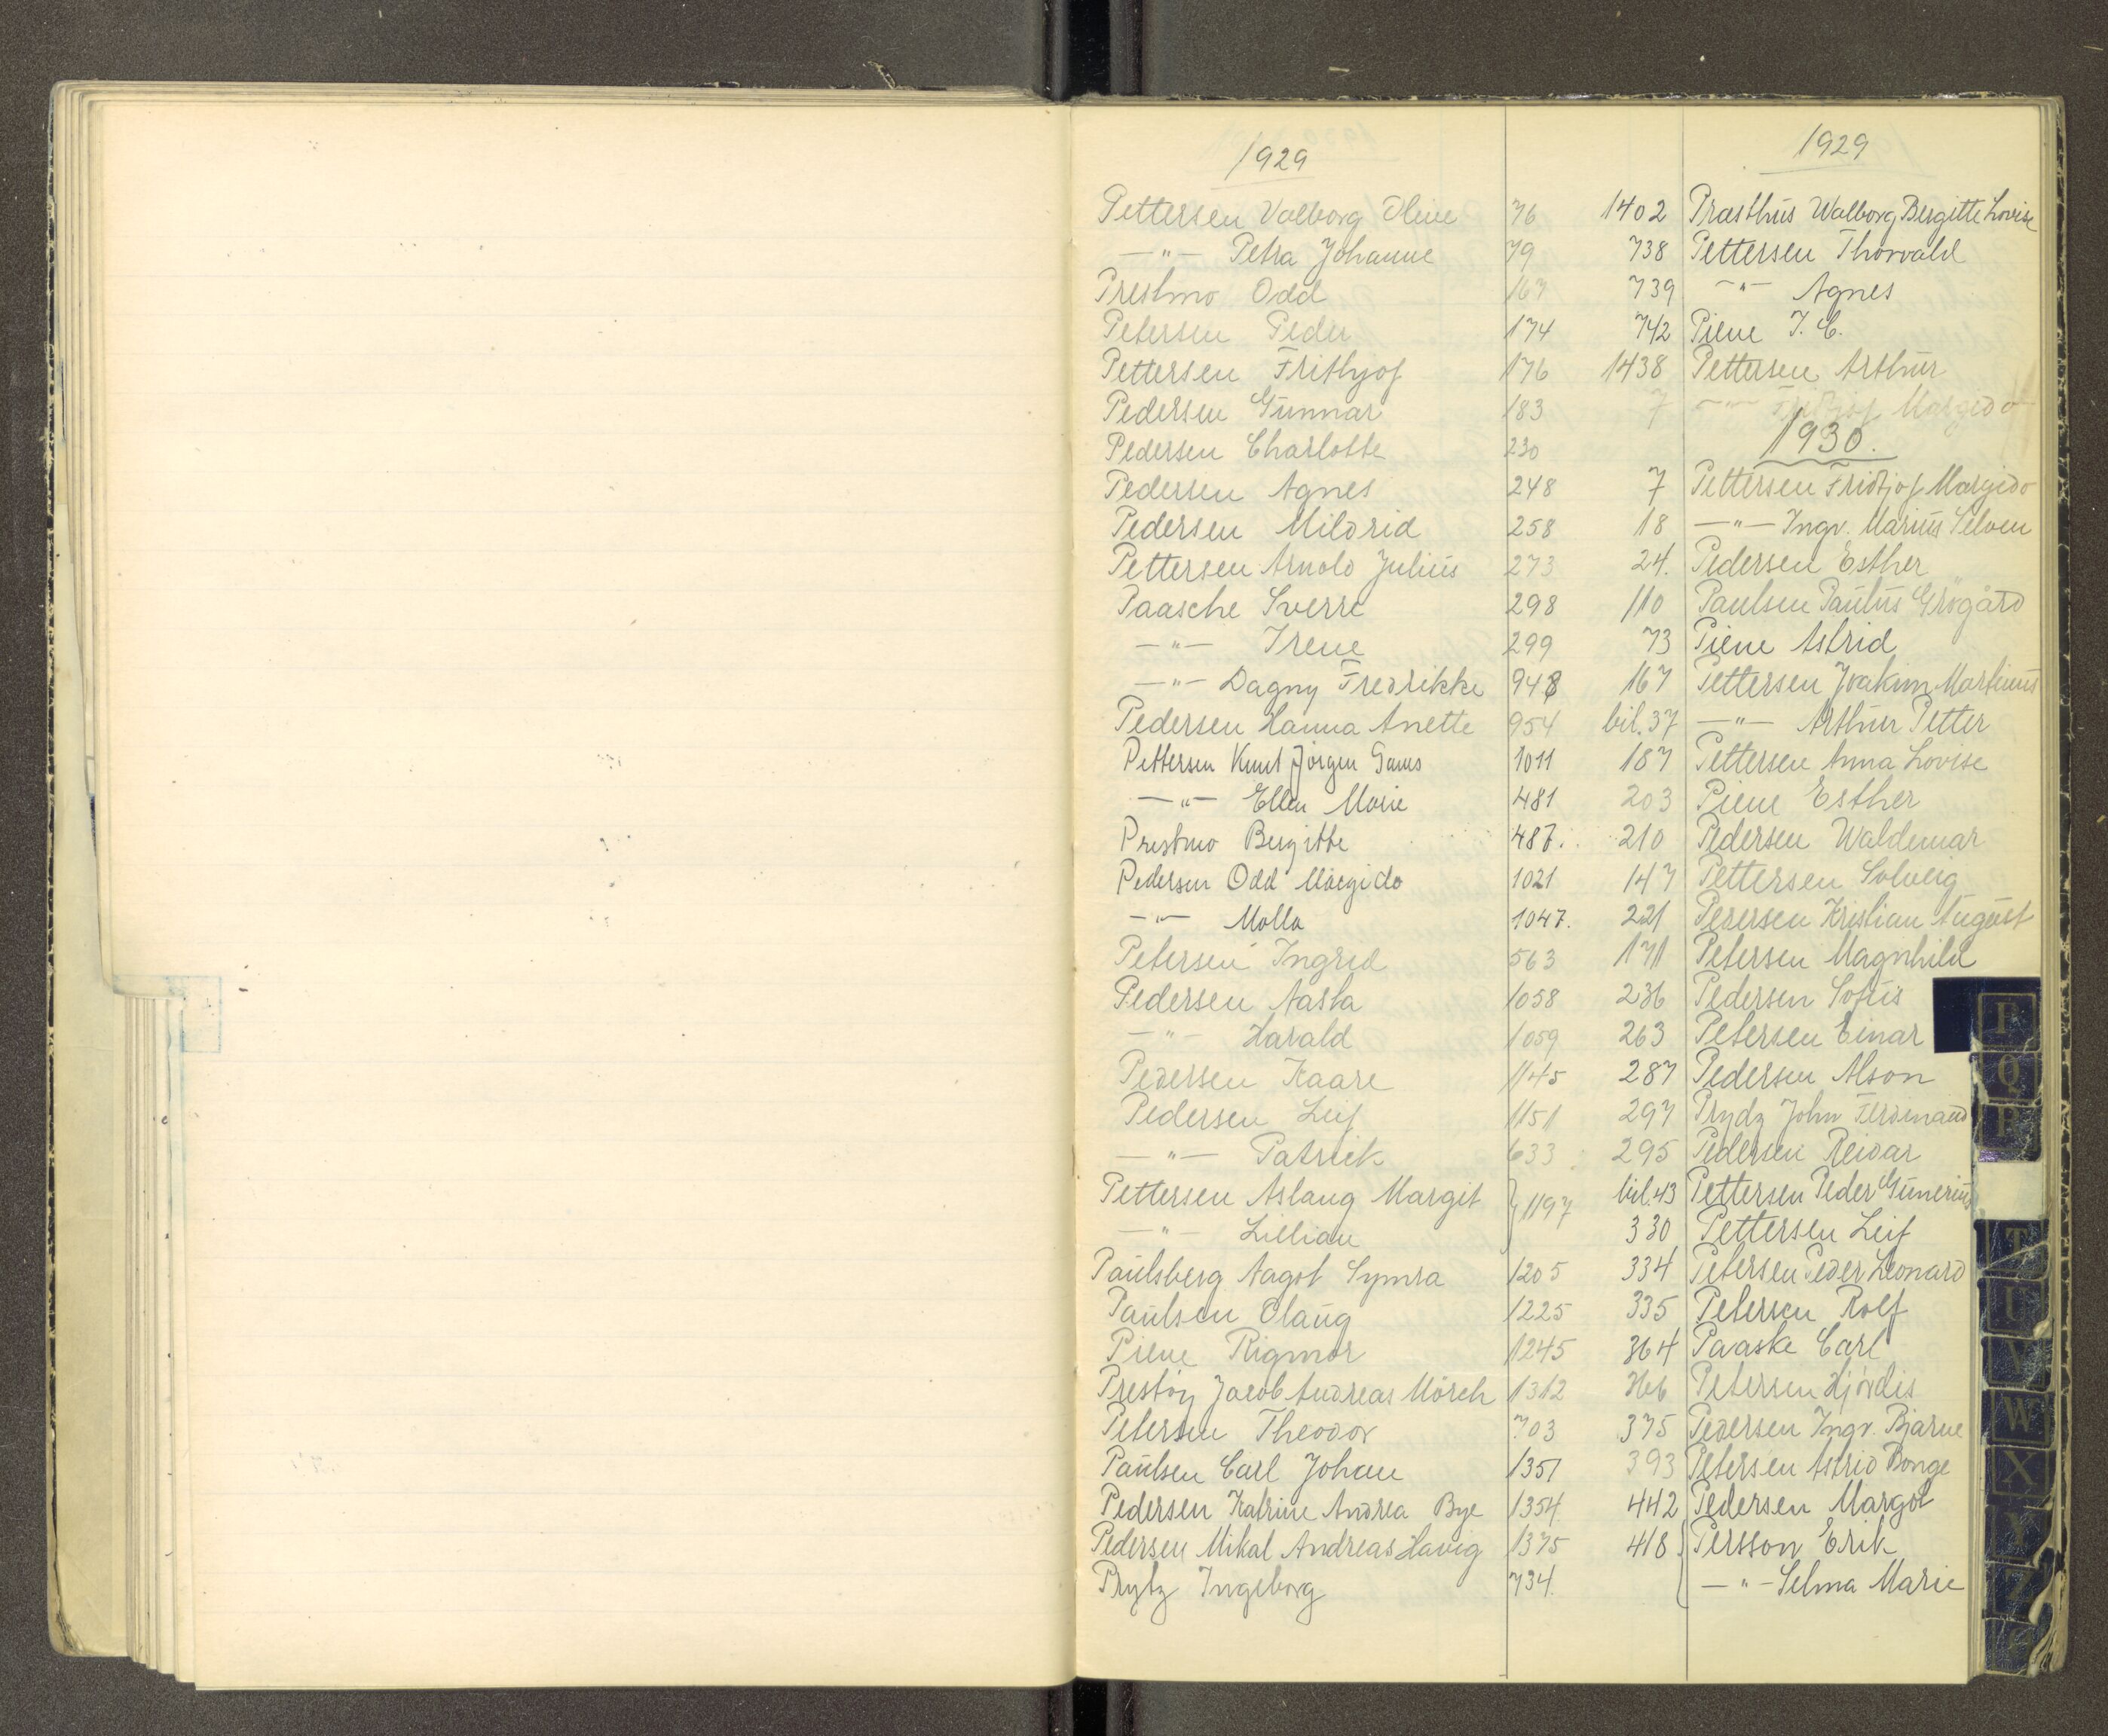 1929
Pettersen Valborg Oline 76
—"— Petra Johanne 79
Prestmo Odd 167
Petersen Peder 174
Pettersen Frithjof 176
Pedersen Gunnar 183
Pedersen Charlotte 230
Pedersen Agnes 248
Pedersen Mildrid 258
Pettersen Arnold Julius 273
Paasche Sverre 298
—"— Irene 299
—"— Dagny Fredrikke 948
Pedersen Hanna Anette 954
Pettersen Knut Jörgen 1011
—"— Ellen Marie 481
Prestmo Bergitte 487.
Pedersen Odd Margido 1021
—"— Molla 1047.
Petersen Ingrid 563
Pedersen Aasta 1058
—"— Harald 1059
Pedersen Kaare 1145
Pedersen Leif 1151
—"— Patrick 633
Pettersen Aslaug Margit } 1197
—"— Lillian
Paulsberg Aagot Symra 1205
Paulsen Olaug 1225
Piene Rigmor 1245
Prestöy Jacob Andreas Mörch 1312
Petersen Theodor 703
Paulsen Carl Johan 1351
Pedersen Katrine Andrea Bye 1354
Pedersen Mikal Andreas Havig 1375
Prytz Ingeborg 734.
1929
1402 Præsthus Walborg Bergitte Lovise
738 Pettersen Thorvald
739 —"— Agnes
742 Piene I. C.
1438 Pettersen Arthur
7 —"— Fridtjof Margido
1930.
7 Pettersen Fridtjof Margido
18 —"— Ingv. Marius Selven
24. Pedersen Esther
110 Paulsen Paulus Grögård
73 Piene Astrid
167 Pettersen Joakim Martinus
bil. 37 —"— Arthur Petter
187 Pettersen Anna Lovise
203 Piene Esther
210 Pedersen Waldemar
147 Pettersen Solveig
221 Pedersen Kristian August
171 Petersen Magnhild
236 Pedersen Sofus
263 Petersen Einar
287 Pedersen Alson
297 Prydz John Ferdinand
295 Pedersen Reidar
bil. 43 Pettersen Peder Gunerius
330 Pettersen Leif
334 Petersen Peder Leonard
335 Petersen Rolf
364 Paaske Carl
366 Petersen Hjördis
375 Pedersen Ingv. Bjarne
393 Petersen Astrid Bonge
442 Pedersen Margot
418 { Persson Erik
—"— Selma Marie
P
Q
R
T
U
V
W
X
Y
Z